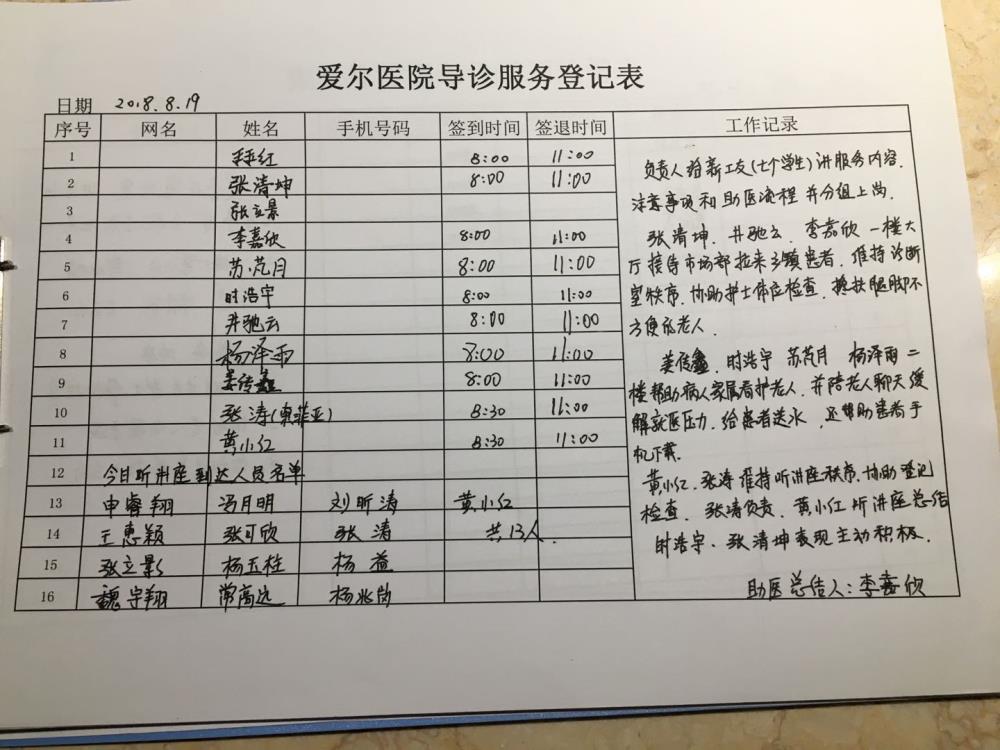 爱尔医院导诊服务登记表
日期 2018.8.19
序号 网名 姓名 手机号码 签到时间 签退时间 工作记录
1 红 8:00 11:00
2 张清坤 8:00 11:00
3 张立景
4 李嘉欣 8:00 11:00
5 苏芃月 8:00 11:00
6 时浩宇 8:00 11:00
7 井驰云 8:00 11:00
8 杨泽雨 8:00 11:00
9 姜传鑫 8:00 11:00
10 张涛(奥菲亚) 8:30 11:00
11 黄小红 8:30 11:00
12 今日听讲座到达人员名单
13 申睿翔 冯月明 刘昕涛 黄小红
14 王惠颖 张可欣 张涛 共13人
15 张立影 杨玉柱 杨益
16 魏宇翔 常高远 杨兆岗
负责人给新工友(七个学生)讲服务内容.
注意事项和助医流程并分组上岗.
张清坤.井驰云.李嘉欣一楼大
厅接待市场部拉来乡镇患者.维持诊断
室秩序.协助护士体位检查.搀扶腿脚不
方便的老人.
姜传鑫.时浩宇 苏芃月 杨泽雨二
楼帮助病人家属看护老人.并陪老人聊天缓
解就医压力.给患者送水,还帮助患者手
机下载.
黄小红.张涛维持听讲座秩序.协助登记
检查.张涛负责.黄小红听讲座总结
时浩宇.张清坤表现主动积极.
助医总结人:李嘉欣